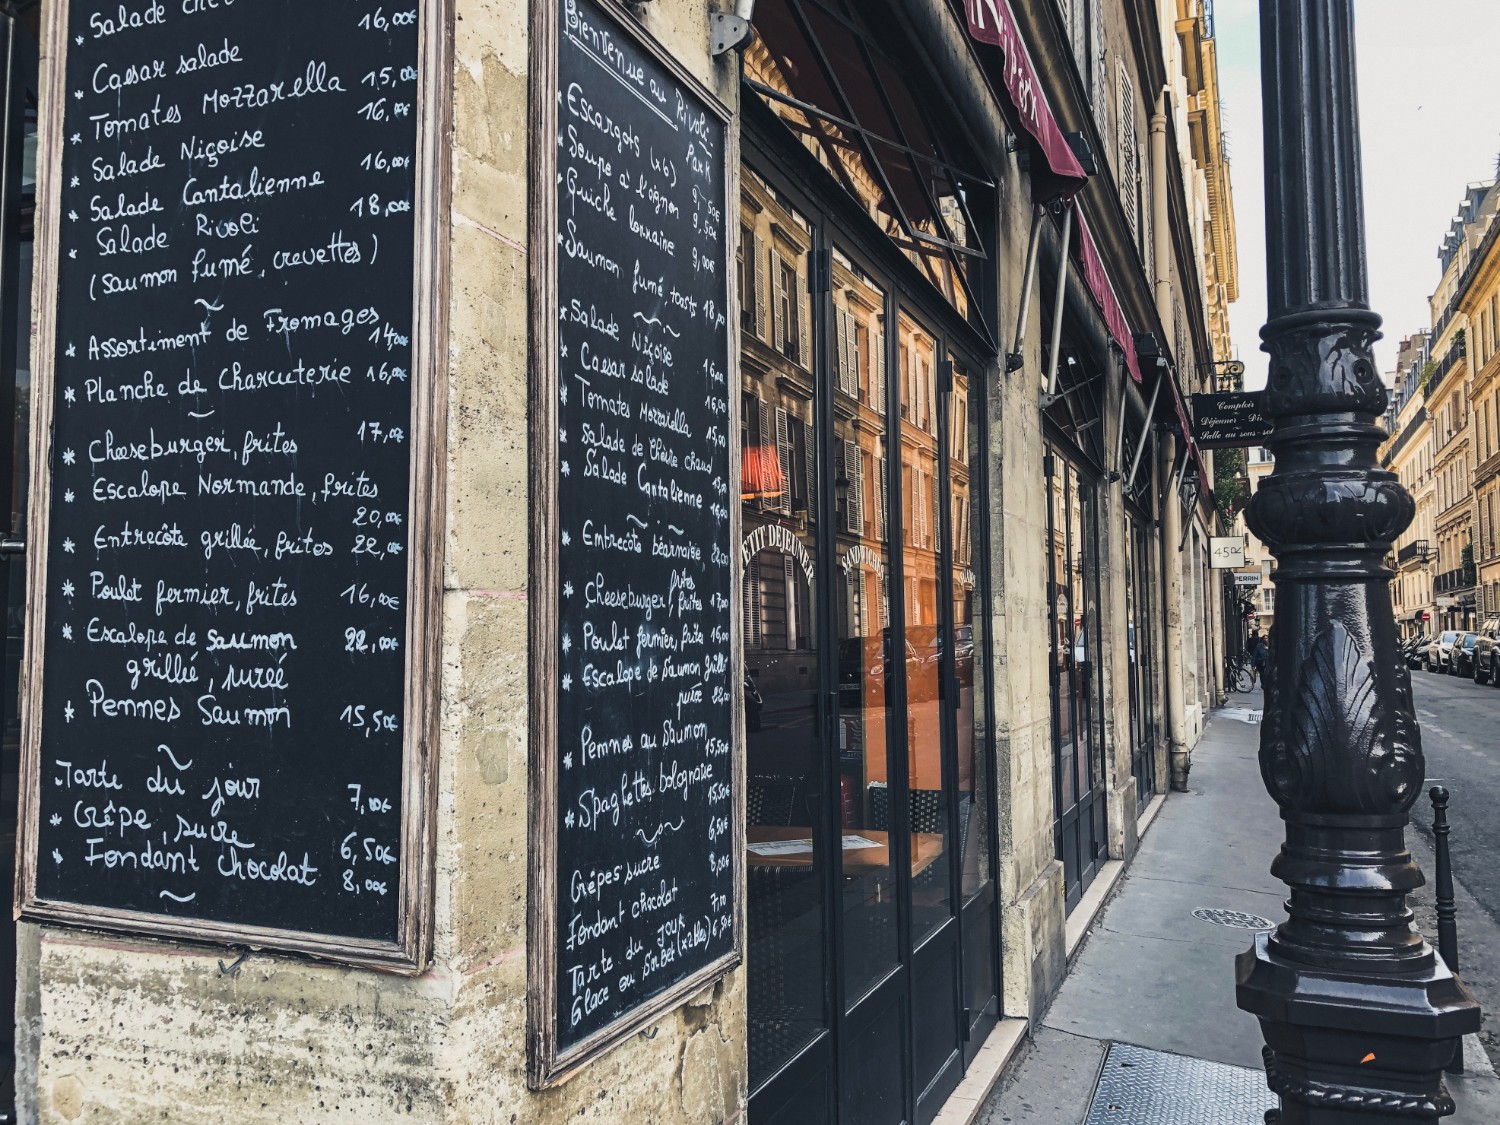 * Salade
16,00€
* Caesar salade
* Tomates Mozzarella 15,00€
16,00€
* Salade Niçoise
16,00€
* Salade Cantalienne
* Salade Rivoli 18,00€
(Saumon fumé, crevettes)
~
* Assortiment de Fromages
14,00€
* Planche de Charcuterie 16,00€
~
* Cheeseburger, frites 17,00€
* Escalope Normande, frites
20,00€
* Entrecôte grillée, frites 22,00€
* Poulet fermier, frites 16,00€
* Escalope de saumon 22,00€
grillée, purée
* Pennes Saumon 15,50€
~
Tarte du jour 7,00€
* Crêpe, sucre 6,50€
* Fondant chocolat 8,00€
~
Bienvenue au Rivoli
Park
* Escargots (x6) 9,50€
* Soupe à l'oignon 9,50€
* Quiche lorraine 9,00€
* Saumon fumé, toasts 18,00
~ ~
* Salade Niçoise 16,00
* Caesar salade 16,00
* Tomates Mozzarella 15,00
* Salade de Chèvre chaud
* Salade Cantalienne 16,00
~ ~
* Entrecôte béarnaise, 22,00
frites
* Cheeseburger, frites 17,00
* Poulet fermier, frites 16,00
* Escalope de Saumon grillé
purée 22,00
* Pennes au Saumon
15,50€
* Spaghettis bolognaise
15,50€
~
Crêpes sucre 6,50€
Fondant chocolat 8,00€
Tarte du jour 7,00
Glace ou Sorbet (x2 bles) 6,50€
PETIT DÉJEUNER
SANDWICHES
Comptoir
Déjeuner - Dî
Salle au sous-sol
450€
PERRIN